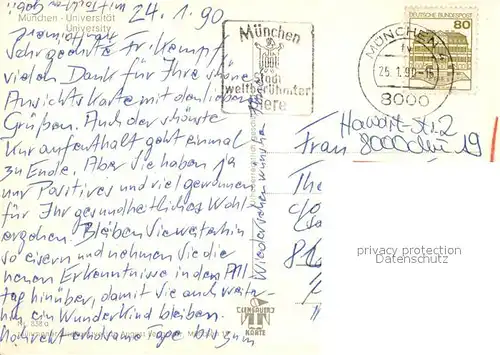 München - Universität
University
24.1.90
Sehr geehrte Fr. Kempf,
vielen Dank für Ihre schöne
Ansichtskarte mit den lieben
Grüßen. Auch der schönste
Kuraufenthalt geht einmal
zu Ende. Aber Sie haben ja
nur Positives und viel gewonnen
für Ihr gesundheitliches Wohl-
ergehen. Bleiben Sie weiterhin
so eisern und nehmen Sie die
neuen Erkenntnisse in den All-
tag hinüber, damit Sie auch weiter-
hin ein Wunderkind bleiben.
Noch recht erholsame Tage bis zum
Wiedersehen wünscht Ihnen
München
Stadt
weltberühmter
Biere
DEUTSCHE BUNDESPOST
80
MÜNCHEN
25.1.90-15
8000
Frau
privacy protection
Datenschutz
KARTE